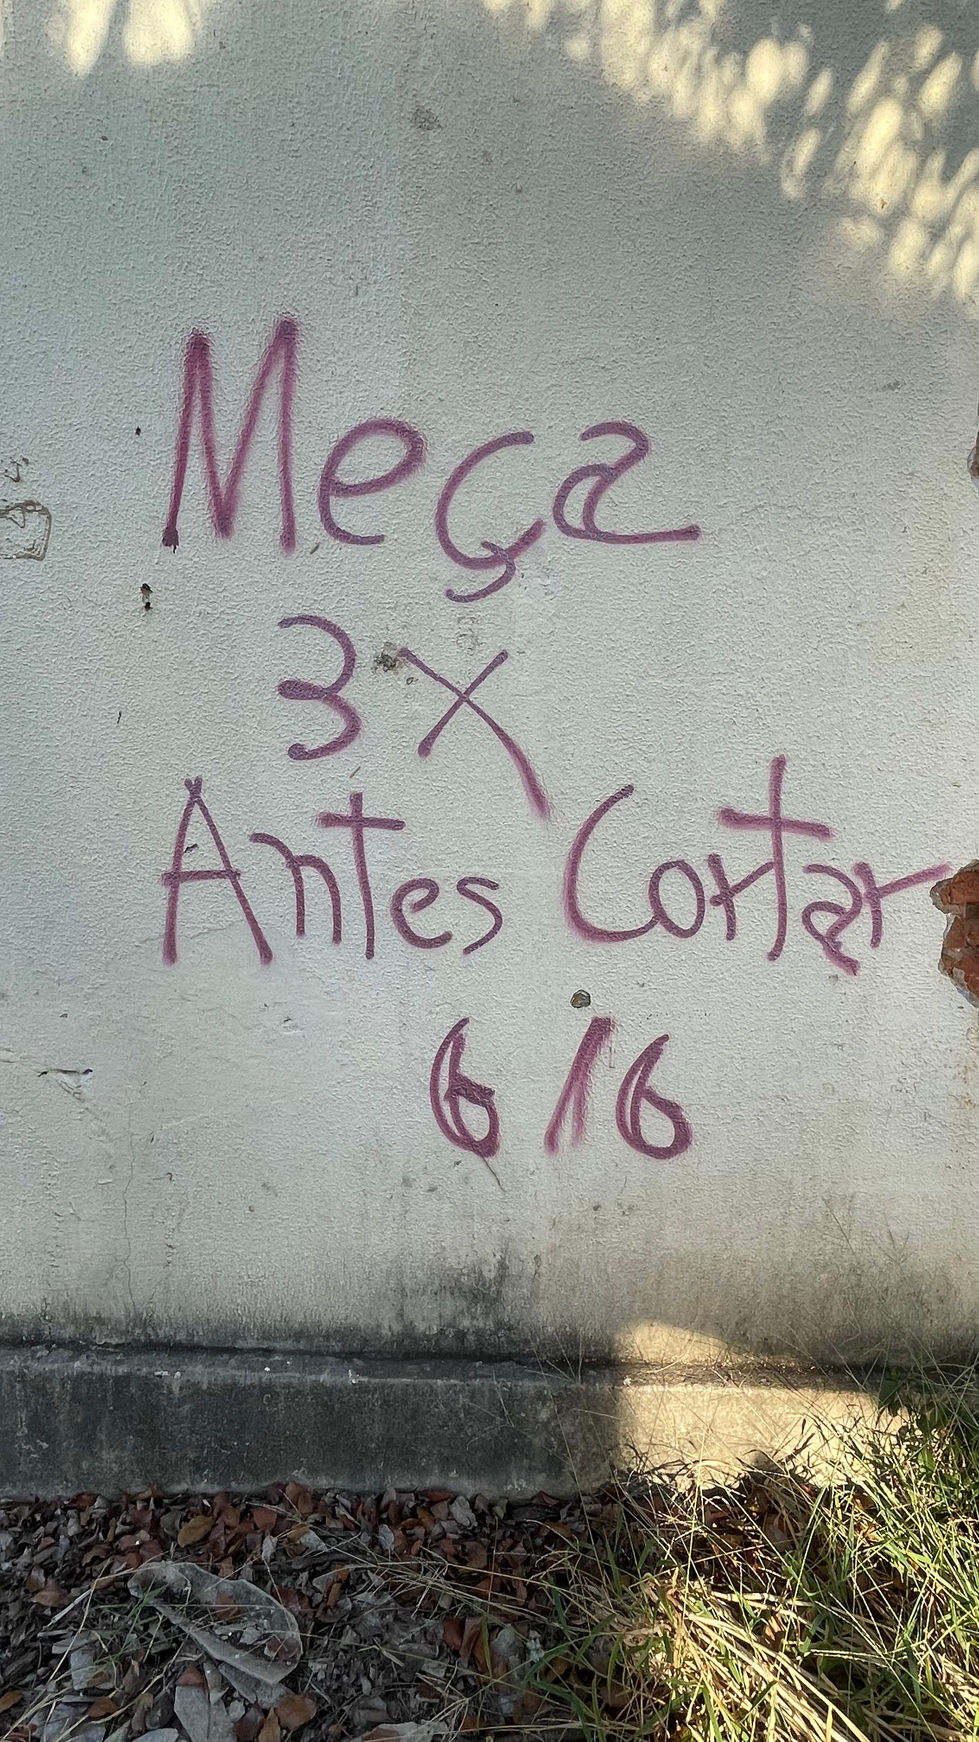 Meça
3X
Antes Cortar
6/6